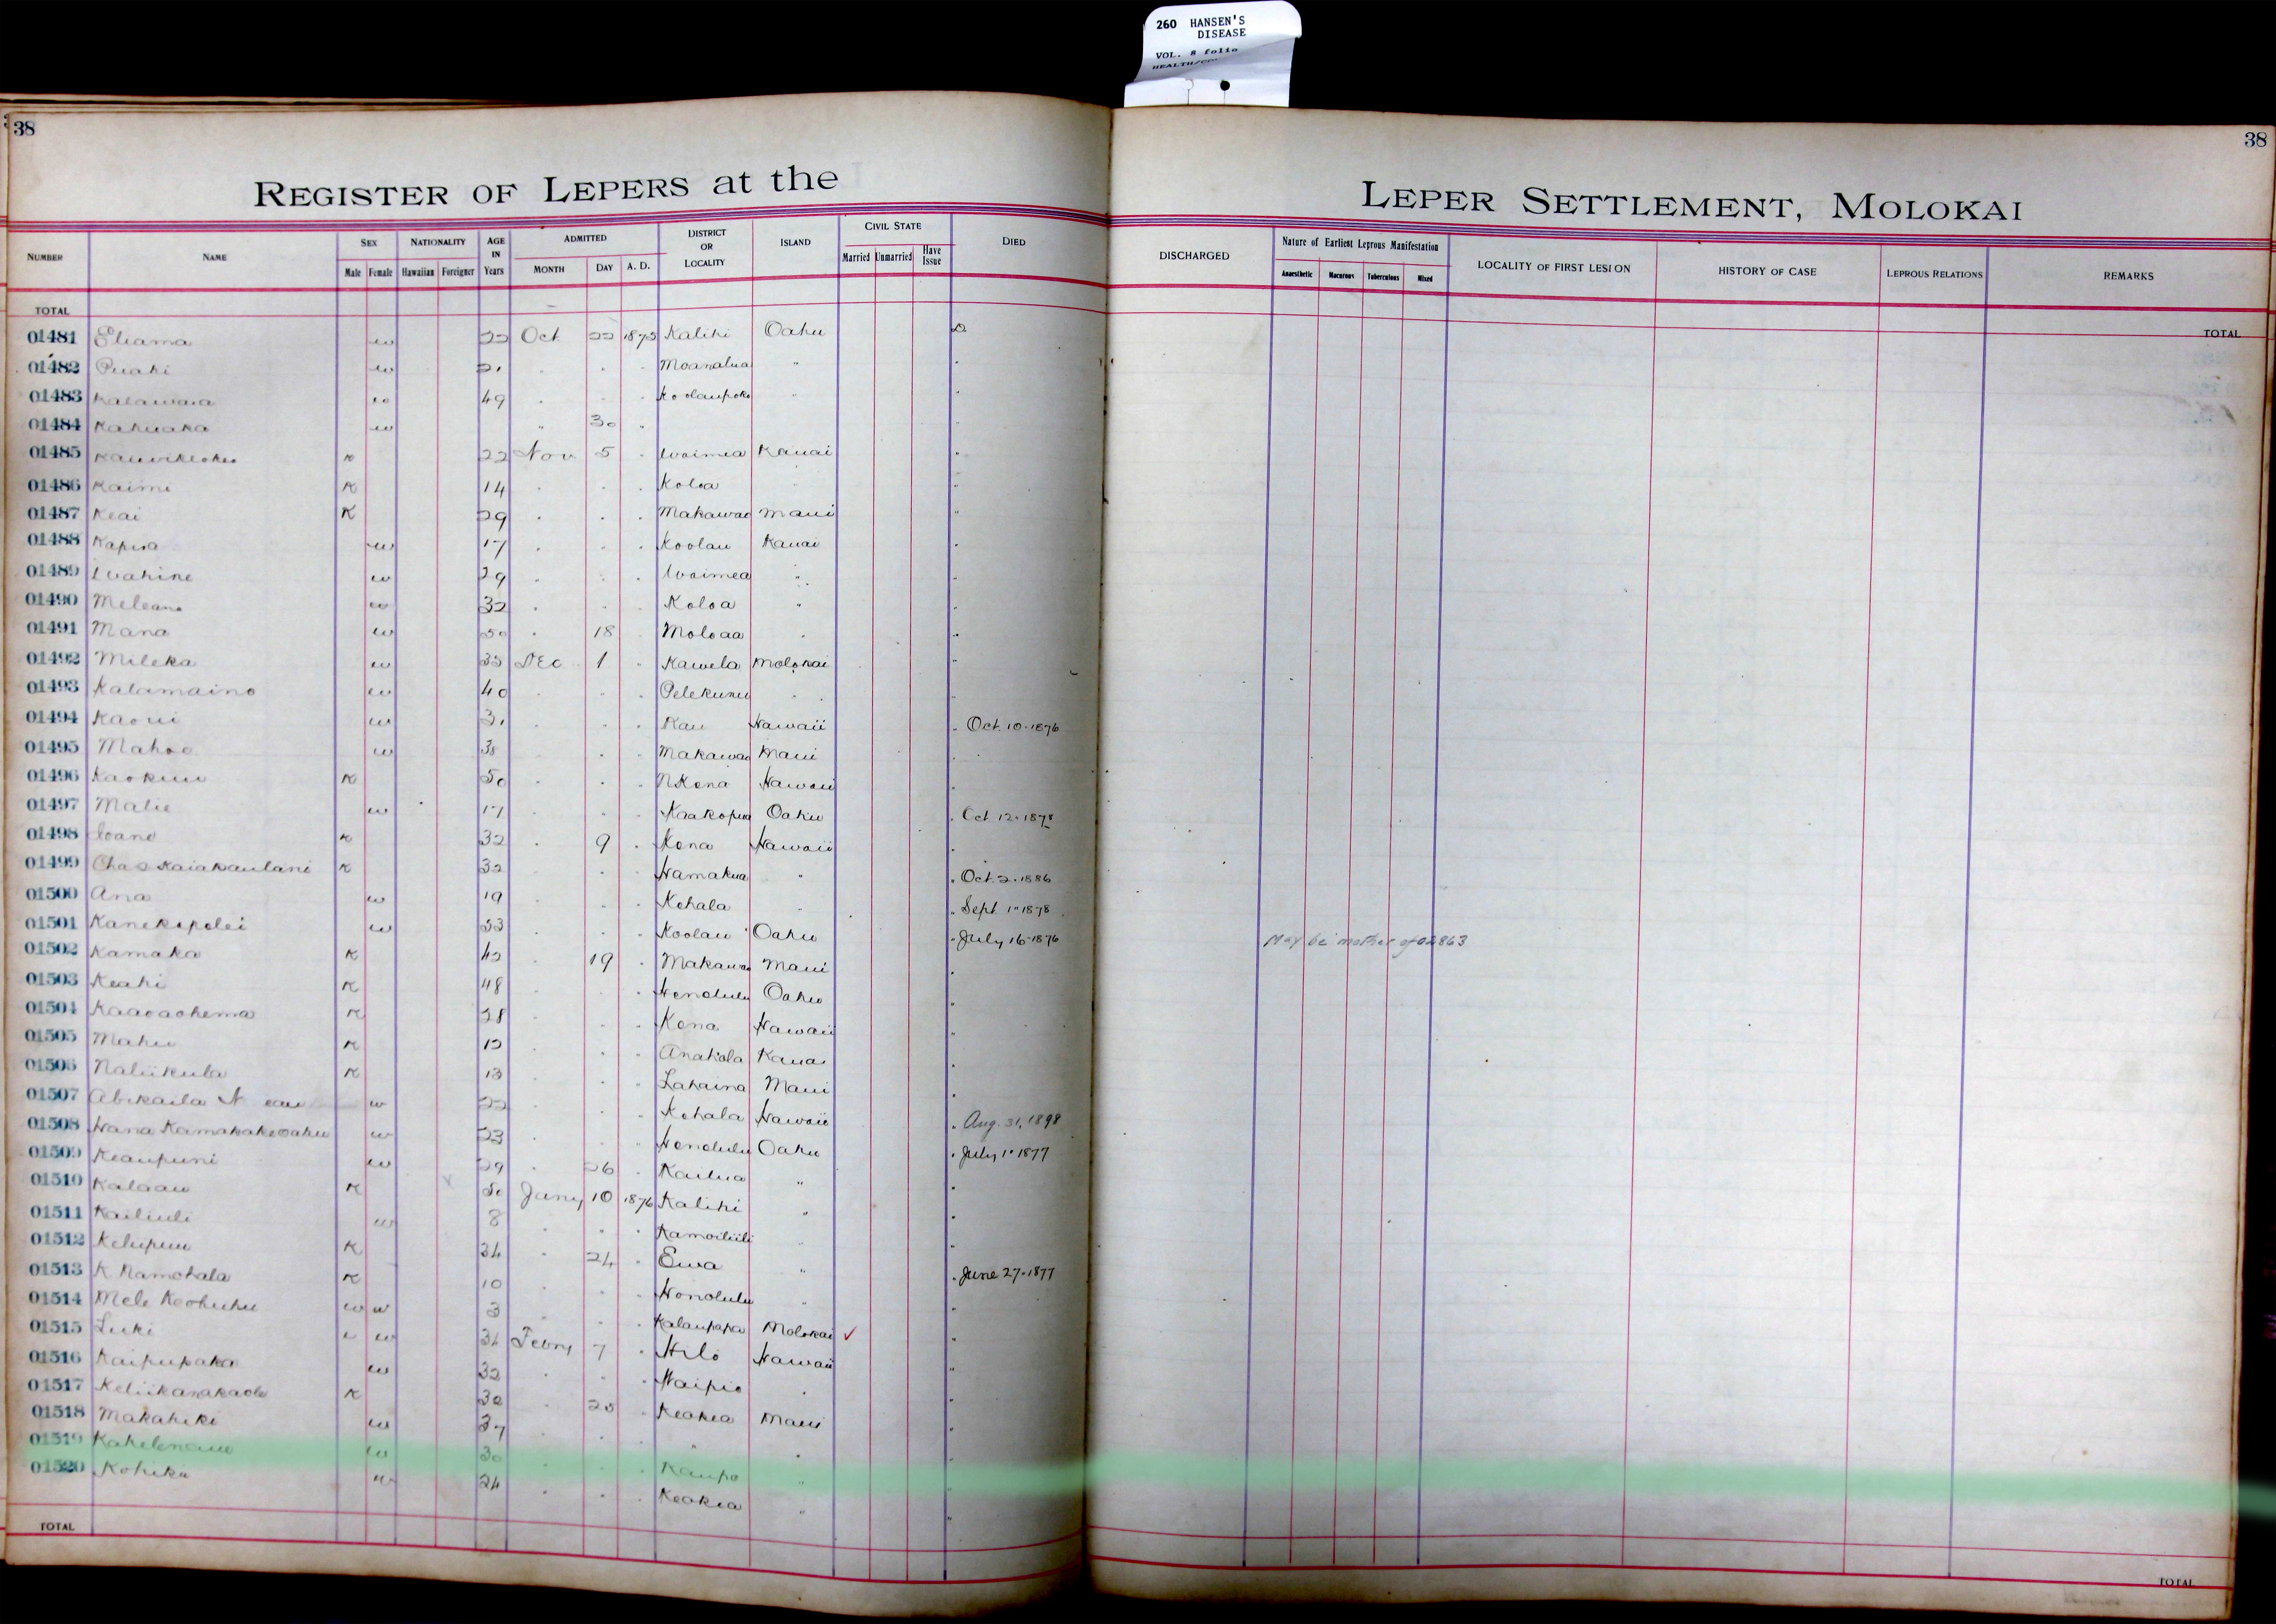 260 HANSEN'S
DISEASE
VOL. 8 folio
38
38
REGISTER OF LEPERS at the
LEPER SETTLEMENT, MOLOKAI
NUMBER NAME SEX Male Female NATIONALITY Hawaiian Foreigner AGE IN Years ADMITTED MONTH DAY A. D. DISTRICT OR LOCALITY ISLAND CIVIL STATE Married Unmarried Have Issue DIED
DISCHARGED Nature of Earliest Leprous Manifestation Anaesthetic Macurous Tuberculous Mixed LOCALITY OF FIRST LESION HISTORY OF CASE LEPROUS RELATIONS REMARKS
TOTAL
TOTAL
01481 Eliama w 22 Oct 22 1875 Kalihi Oahu D
01482 Puahi w 21 " " " Moanalua "
01483 Kalawaia w 49 " " " Koolaupoko "
01484 Kahuaka w " 30 "
01485 K 22 Nov 5 " Waimea Kauai "
01486 Kaimi K 14 " " " Koloa "
01487 Keai K 29 " " " Makawao Maui "
01488 Kapua w 17 " " " Koolau Kauai "
01489 Wahine w 29 " " " Waimea " "
01490 Meleana w 32 " " " Koloa " "
01491 Mana w 50 " 18 " Moloaa " "
01492 Mileka w 35 Dec 1 " Kawela Molokai "
01493 Kalamaino w 40 " " " Pelekunu " "
01494 Kaoui w 31 " " " Kau Hawaii " Oct. 10-1876
01495 Mahoe w 38 " " " Makawao Maui "
01496 Kaokuu K 50 " " " N Kona Hawaii "
01497 Malie w 17 " " " Kaakopua Oahu " Oct 12-1878
01498 Ioane K 32 " 9 " Kona Hawaii "
01499 Chas Kaiakaulani K 32 " " " Hamakua " " Oct. 2-1886
01500 Ana w 19 " " " Kohala " " Sept 1-1878
01501 Kanekapolei w 53 " " " Koolau Oahu " July 16-1876 May be mother of 02863
01502 Kamaka K 42 " 19 " Makawao Maui "
01503 Keahi K 48 " " " Honolulu Oahu "
01504 Kaaoaohema K 28 " " " Kona Hawaii "
01505 Mahu K 12 " " " Anahola Kauai "
01506 Naliikula K 13 " " " Lahaina Maui "
01507 Abikaila N w 22 " " " Kohala Hawaii " Aug. 31, 1898
01508 Hana Kamakakeoahu w 23 " " " Honolulu Oahu " July 1-1877
01509 Keaupuni w 29 " 26 " Kailua " "
01510 Kalaau K 50 Jany 10 1876 Kalihi " "
01511 Kailiuli w 8 " " " Kamoiliili " "
01512 Kelupuu K 34 " 24 " Ewa " "
01513 K Namohala K 10 " " " Honolulu " " June 27-1877
01514 Mele Keohuhu w w 3 " " " Kalaupapa Molokai ✓ "
01515 Luki w 34 Febry 7 " Hilo Hawaii "
01516 Kaipupaka w 32 " " " Waipio " "
01517 Keliikanakaole K 30 " 20 " Keokea Maui "
01518 Makahiki w 37 " " " " " "
01519 w 30 " " " Kaupo " "
01520 Kohika w 24 " " " Keokea " "
TOTAL
TOTAL